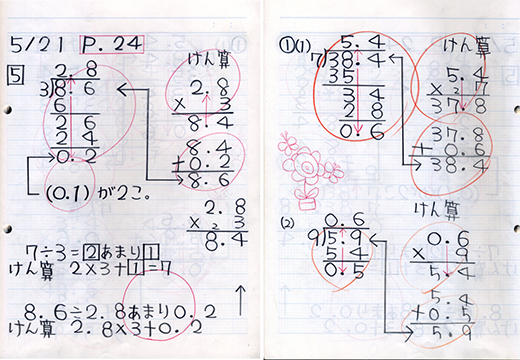 5/21 P.24
5
2.8
3)8.6
6
2 6
2 4
0.2
(0.1)が2こ。
けん算
2.8
× 3
8.4
8.4
+0.2
8.6
2.8
× 2 3
8.4
7÷3=2あまり1
けん算 2×3+1=7
8.6÷2.8あまり0.2
けん算 2.8×3+0.2
①(1)
5.4
7)38.4
35
3 4
2 8
0.6
けん算
5.4
× 2 7
37.8
37.8
+ 0.6
38.4
けん算
(2)
0.6
9)5.9
5 4
0.5
0.6
× 9
5.4
5.4
+0.5
5.9